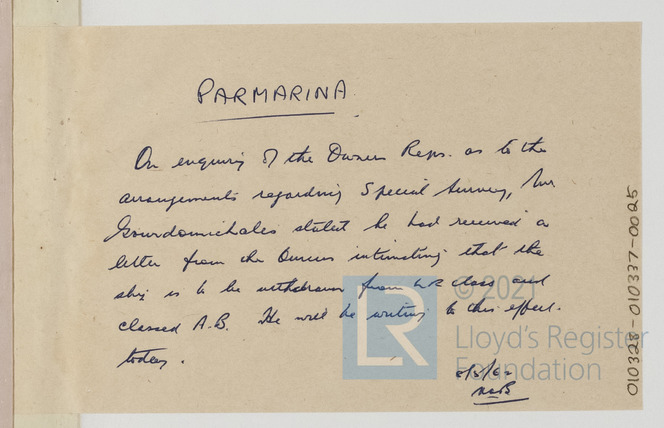 PARMARINA
On enquiry of the Owners Reps. as to the
arrangements regarding Special Survey, Mr
Gourdomichales stated he had received a
letter from the Owners intimating that the
ship is to be withdrawn from LR class and
classed A.B. He will be writing to this effect.
today.
© 2021
LR
Lloyd's Register
Foundation
010338-010337-0025